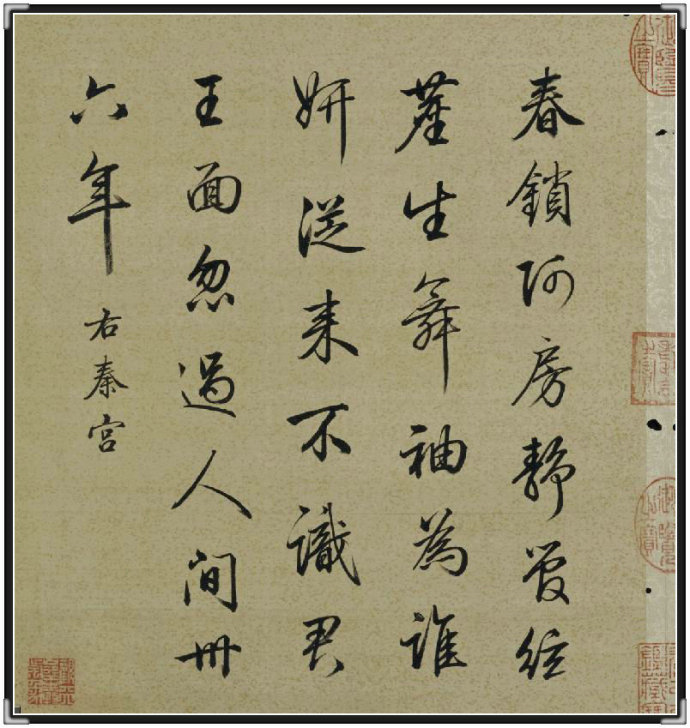 春鎖阿房靜管絃
塵生舞袖為誰
妍從来不識君
王面忽過人間卅
六年
右秦宫